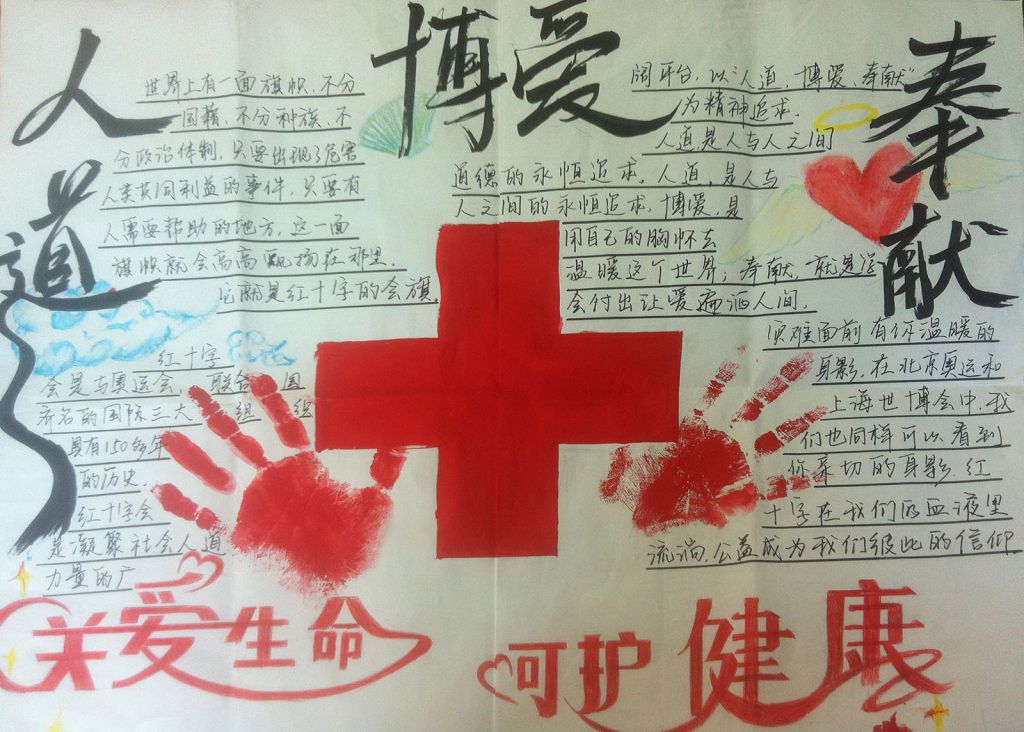 人道
博爱
奉献
世界上有一面旗帜、不分
国籍、不分种族、不
分政治体制，只要出现了危害
人类共同利益的事件，只要有
人需要帮助的地方，这一面
旗帜就会高高飘扬在那里．
它就是红十字的会旗．
红十字
会是与奥运会，联合国
齐名的国际三大组组
具有150多年
的历史．
红十字会
是凝聚社会人道
力量的广
阔平台，以“人道，博爱，奉献”
为精神追求．
人道是人与人之间
道德的永恒追求，人道，是人与
人之间的永恒追求，博爱，是
用自己的胸怀去
温暖这个世界；奉献，就是学
会付出让爱遍洒人间．
灾难面前有你温暖的
身影，在北京奥运和
上海世博会中，我
们也同样可以看到
你亲切的身影．红
十字在我们的血液里
流淌，公益成为我们彼此的信仰
关爱生命
呵护健康